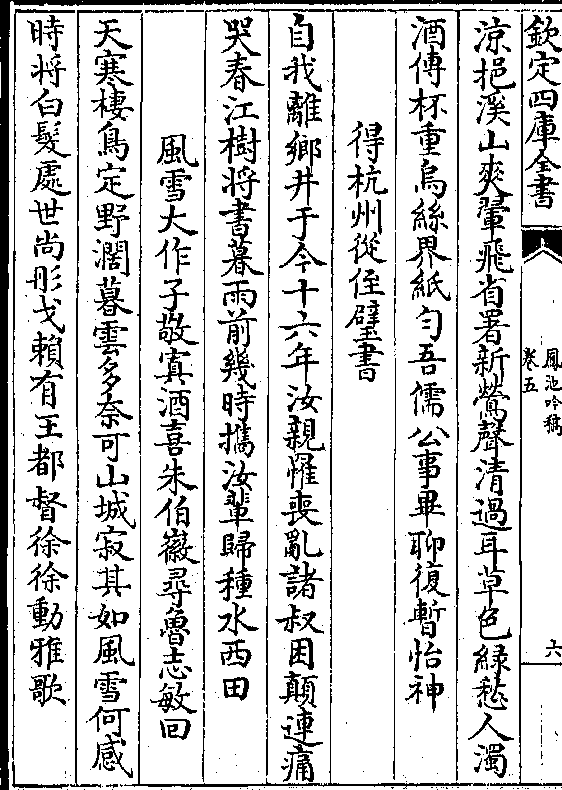 欽定四庫全書
鳳池吟稿
卷五
六
涼挹溪山爽翬飛省署新鶯聲清過耳草色緑愁人濁
酒傳杯重烏絲界紙勻吾儒公事畢聊復暫怡神
得杭州從侄璧書
自我離鄉井于今十六年汝親罹喪亂諸叔困顛連痛
哭春江樹將書暮雨前幾時攜汝輩歸種水西田
風雪大作子敬寘酒喜朱伯徽尋魯志敏回
天寒棲鳥定野濶暮雲多奈可山城寂其如風雪何感
時将白髮處世尚彤戈賴有王都督徐徐動雅歌